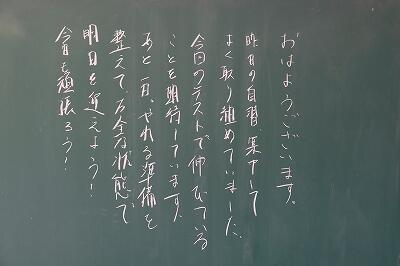 おはようございます。
昨日の自習、集中して
よく取り組めていました。
今回のテストで伸びている
ことを期待しています。
あと一日、やれる準備を
整えて、万全な状態で
明日を迎えよう!
今日も頑張ろう!